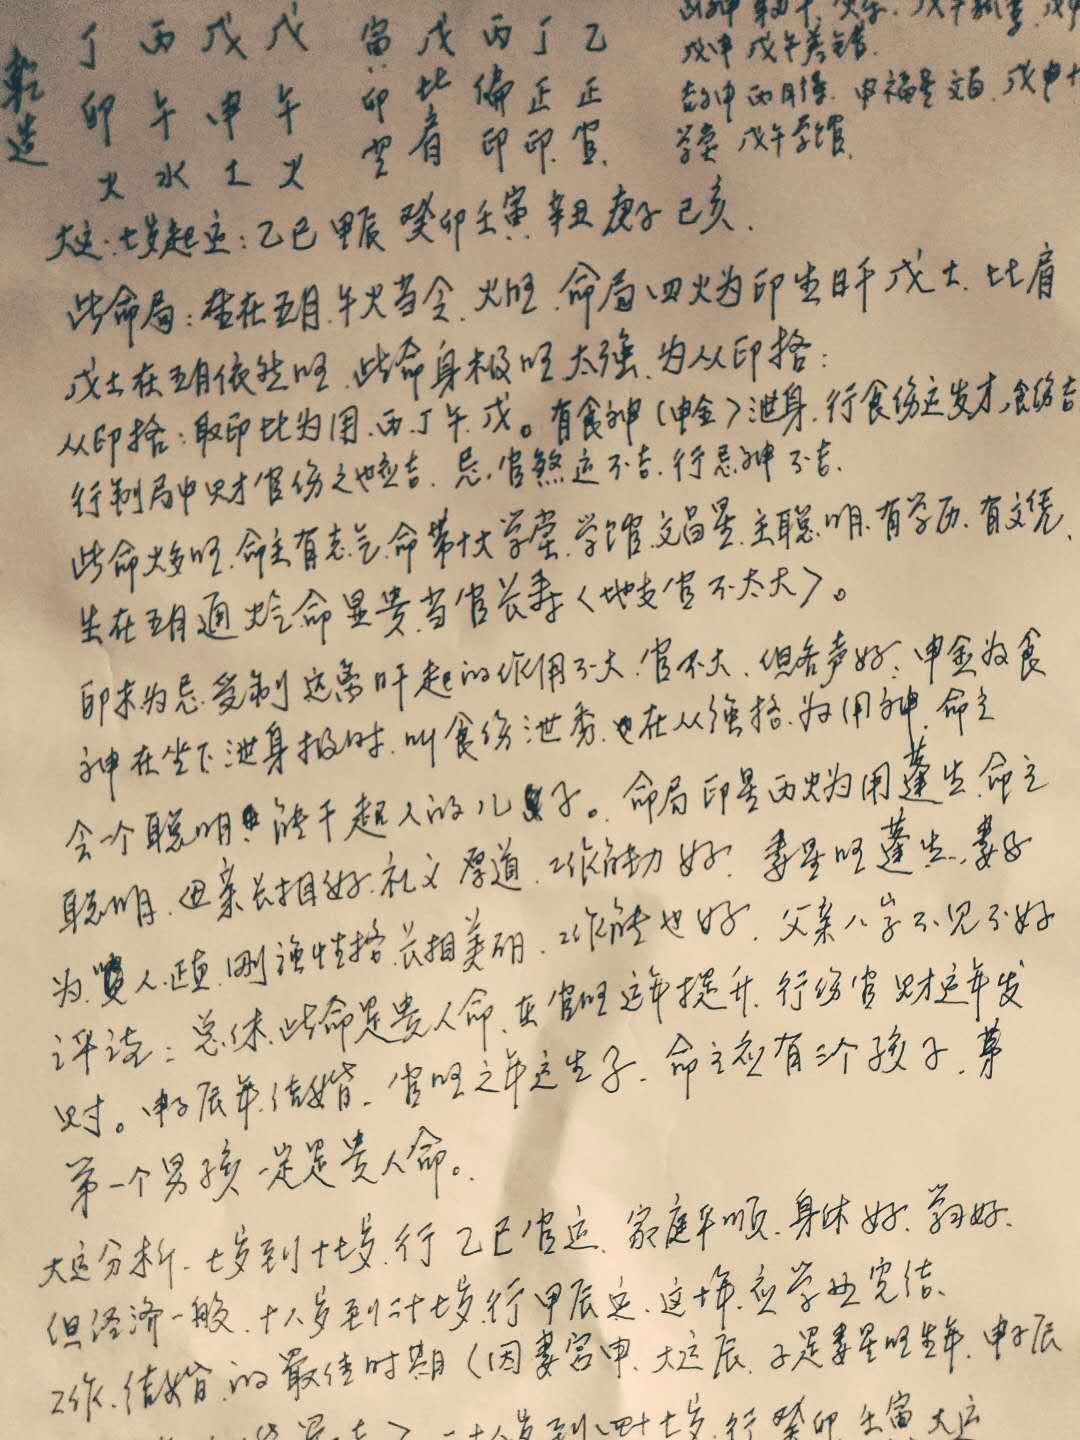 乾造
丁 丙 戊 戊 寅 戊 丙 丁 乙
卯 午 申 午 卯 比 偏 正 正
空 肩 印 印 官
火 水 土 火
戊申 戊午
吉神 申福星 文昌 戊申十
学堂 戊午学馆
大运:七岁起运:乙巳 甲辰 癸卯 壬寅 辛丑 庚子 己亥.
此命局:生在五月.午火当令.火旺.命局四火为印生日干戊土.比肩
戊土在五月依然旺.此命身极旺太强.为从印格:
从印格:取印比为用.丙.丁午.戊。有食神(申金)泄身.行食伤运发才,食伤吉
行制局中财官伤之地应吉.忌.官煞运不吉.行忌神不吉.
此命火多旺.命主有志气.命带十大学堂.学馆.文昌星.主聪明.有学历.有文凭.
生在五月通火气.命显贵.当官长寿<地支官不太大>。
印木为忌.受制 起的作用不大.官不大.但名声好.申金为食
神在坐下泄身极时.叫食伤泄秀.也在从强格.为用神.命主
会个聪明.能干超人的儿子。命局印星丙火为用蓬生.命主
聪明.母亲长相好.礼义厚道.工作能力好.妻星旺蓬生.妻子
为贤人.正直.刚强性格.长相美丽.工作能也好.父亲八字不见不好
评注:总体.此命是贵人命.在官旺运年提升.行伤官财运年发
财。申子辰年.结婚.官旺之年运生子.命主应有三个孩子.第
第一个男孩一定是贵人命。
大运分析.七岁到十七岁.行乙巳官运.家庭平顺.身体好.学习好.
但经济一般.十八岁到二十七岁.行甲辰运.这十年.应学业完结.
工作.结婚.的最佳时期(因妻宫申.大运辰.子是妻星旺生年.申子辰
二十八岁到四十七岁.行癸卯 壬寅大运